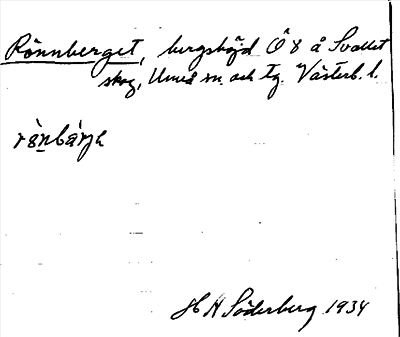 Rönnberget, bergshöjd Ö 8 å Svallet
skog, Umeå sn. och tg. Västerb. l.
H N Söderberg 1934